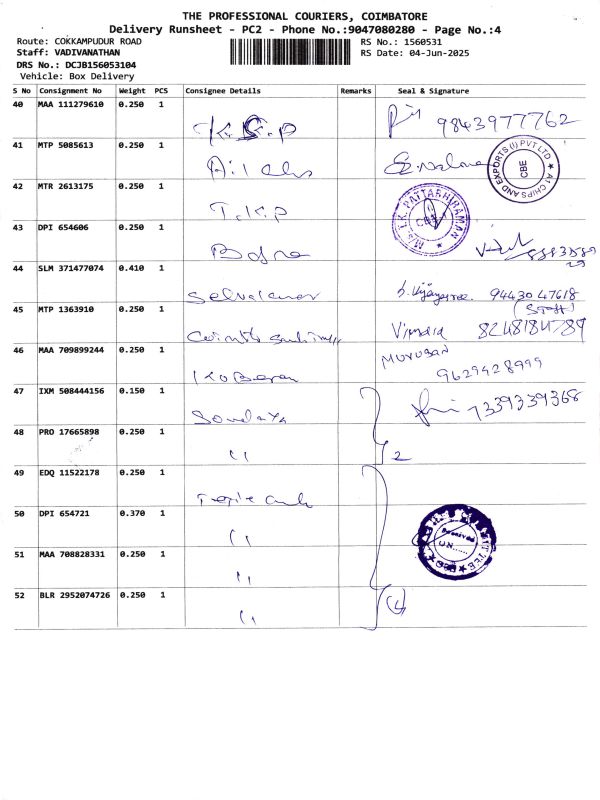 THE PROFESSIONAL COURIERS, COIMBATORE
Delivery Runsheet - PC2 - Phone No.:9047080280 - Page No.:4
Route: COKKAMPUDUR ROAD
RS No.: 1560531
Staff: VADIVANATHAN
RS Date: 04-Jun-2025
DRS No.: DCJB156053104
Vehicle: Box Delivery
S No Consignment No Weight PCS Consignee Details Remarks Seal & Signature
40 MAA 111279610 0.250 1
K.G.P 9843977762
41 MTP 5085613 0.250 1
A1 CHIPS AND EXPORTS (I) PVT LTD CBE
42 MTR 2613175 0.250 1
T.K.P
M/s. T.K. PATTABHIRAMAN
43 DPI 654606 0.250 1
44 SLM 371477074 0.410 1
Selvakumar 9443047618
(Staff)
45 MTP 1363910 0.250 1
Vimala 8248184789
46 MAA 709899244 0.250 1
MURUGAN
9629428999
47 IXM 508444156 0.150 1
7339339368
48 PRO 17665898 0.250 1
" 2
49 EDQ 11522178 0.250 1
50 DPI 654721 0.370 1
"
Received
51 MAA 708828331 0.250 1
"
52 BLR 2952074726 0.250 1
" 4